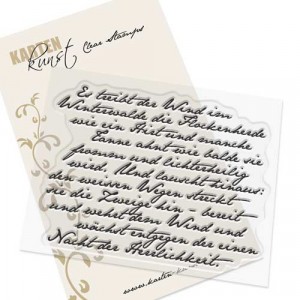 KARTEN
Kunst Clear Stamps
Es treibt der Wind im
Winterwalde die Flockenherde
wie ein Hirt und manche
Tanne ahnt wie balde sie
fromm und lichterheilig
wird. Und lauscht hinaus:
den weissen Wegen streckt
sie die Zweige hin - bereit
und wehrt dem Wind und
wächst entgegen der einen
Nacht der Herrlichkeit.
www.karten-